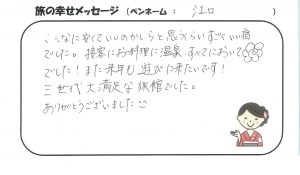 旅の幸せメッセージ (ペンネーム : 江口 )
こんなに安くていいのかしらと思うくらいすごくいい宿
でした。接客にお料理に温泉、すべてにおいて
でした！また来年も遊びに来たいです！
三世代大満足な旅館でした。
ありがとうございました